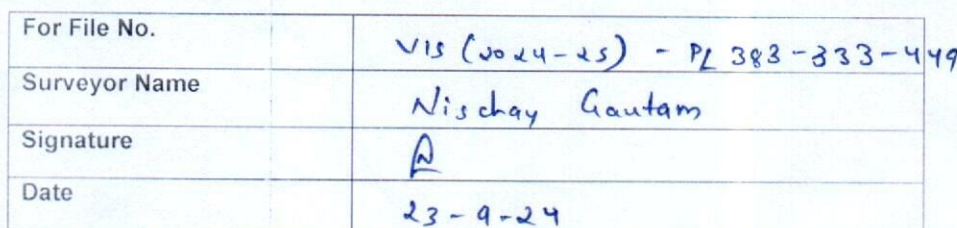 For File No.
VIS (2024-25) - PL 383-333-449
Surveyor Name
Nischay Gautam
Signature
Date
23-9-24